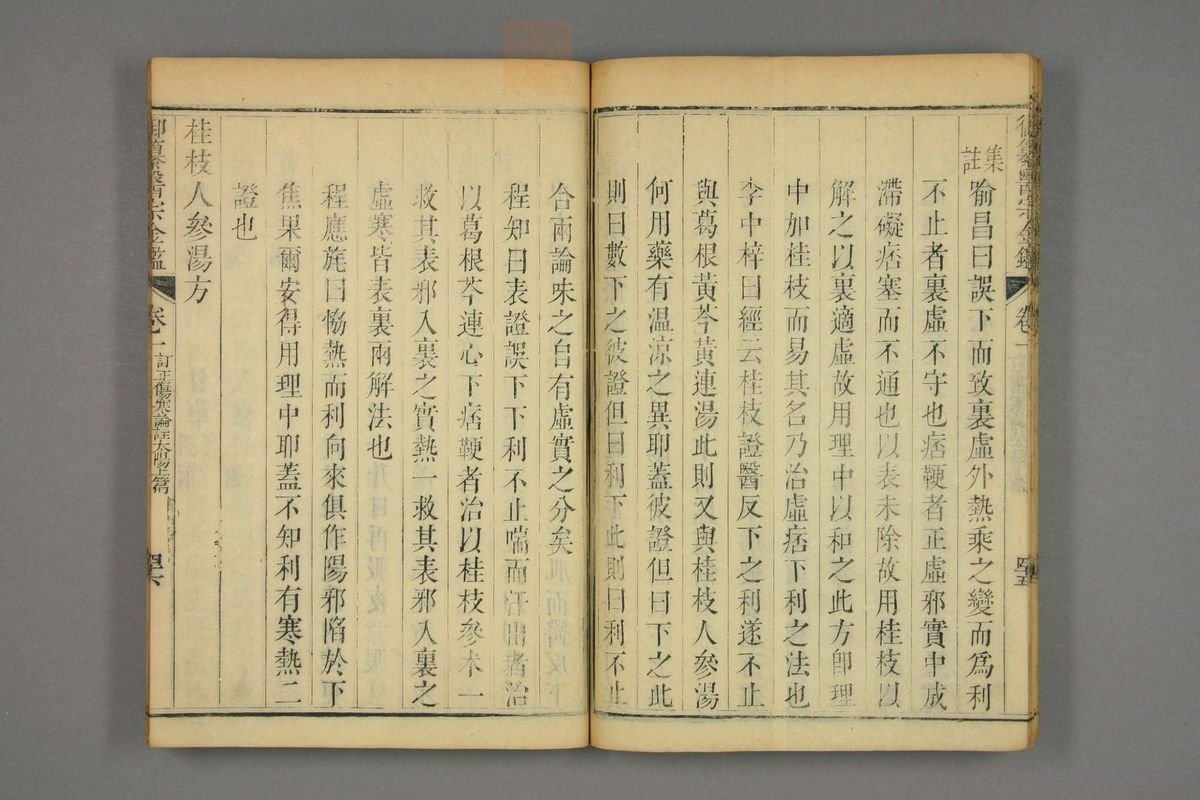 集註
喻昌曰誤下而致裏虛外熱乘之變而爲利
不止者裏虛不守也痞鞕者正虛邪實中成
滯礙痞塞而不通也以表未除故用桂枝以
解之以裏適虛故用理中以和之此方卽理
中加桂枝而易其名乃治虛痞下利之法也
李中梓曰經云桂枝證醫反下之利遂不止
與葛根黃芩黃連湯此則又與桂枝人參湯
何用藥有温涼之異耶蓋彼證但曰下之此
則曰數下之彼證但曰利下此則曰利不止
合兩論味之自有虛實之分矣
程知曰表證誤下下利不止喘而汗出者治
以葛根芩連心下痞鞕者治以桂枝參术一
救其表邪入裏之實熱一救其表邪入裏之
虛寒皆表裏兩解法也
程應旄曰恊熱而利向來俱作陽邪陷於下
焦果爾安得用理中耶蓋不知利有寒熱二
證也
桂枝人參湯方
御纂醫宗金鑑
卷一
訂正傷寒論註太陽上篇
四十六
卷一
四十五